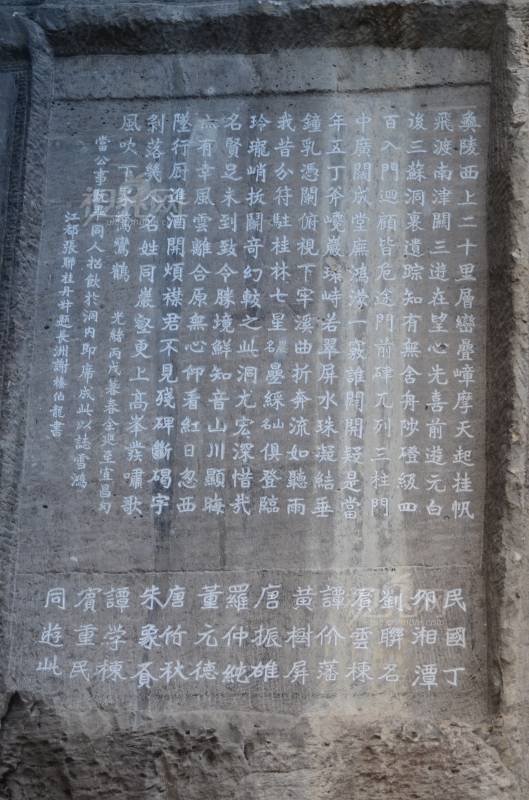 夷陵西上二十里層巒疊嶂摩天起挂帆
飛渡南津關三遊在望心先喜前遊元白
後三蘇洞裏遺踪知有無舍舟陟磴級四
百入門迴顧皆危途門前碑兀列三柱門
中廣闊成堂廡鴻濛一竅誰開闢疑是當
年五丁斧巉巖環峙若翠屏水珠凝結垂
鐘乳憑闌俯視下牢溪曲折奔流如聽雨
我昔分符駐桂林七星巖名疊綵山名俱登臨
玲瓏峭拔闘奇幻較之此洞尤宏深惜哉
名賢足未到致令勝境鮮知音山川顯晦
亦有幸風雲離合原無心仰看紅日忽西
墜行厨進酒開煩襟君不見殘碑斷碣字
剝落幾人名姓同巖壑更上高峯發嘯歌
風吹下界驚鸞鶴
光緒丙戌暮春余
宜昌
同人招飲於洞內即席成此以誌雪鴻
江都張聯桂丹叔題長洲謝榛伯龍書
民國丁
卯湘潭
劉聯名
賓雲棟
譚价藩
黄樹屏
唐振雄
羅仲純
董元德
唐竹秋
朱象頁
譚学棟
賓重民
同遊此